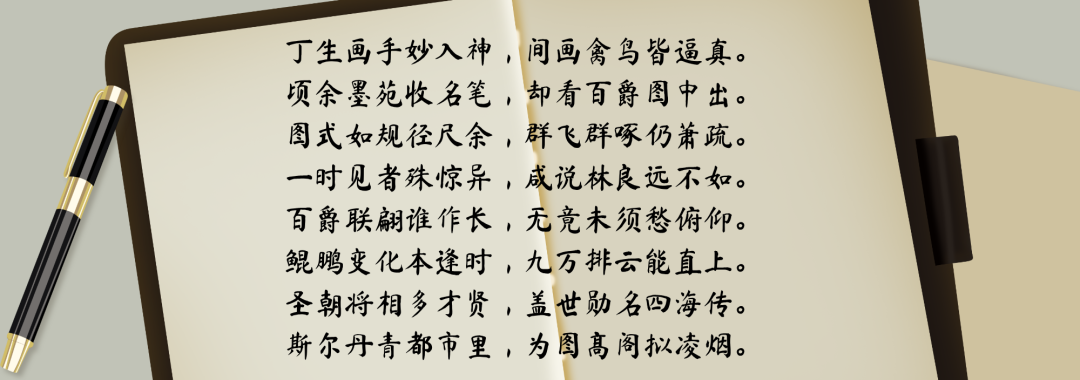 丁生画手妙入神，间画禽鸟皆逼真。
顷余墨苑收名笔，却看百爵图中出。
图式如规径尺余，群飞群啄仍萧疏。
一时见者殊惊异，咸说林良远不如。
百爵联翩谁作长，无竟未须愁俯仰。
鲲鹏变化本逢时，九万排云能直上。
圣朝将相多才贤，盖世勋名四海传。
斯尔丹青都市里，为图高阁拟凌烟。